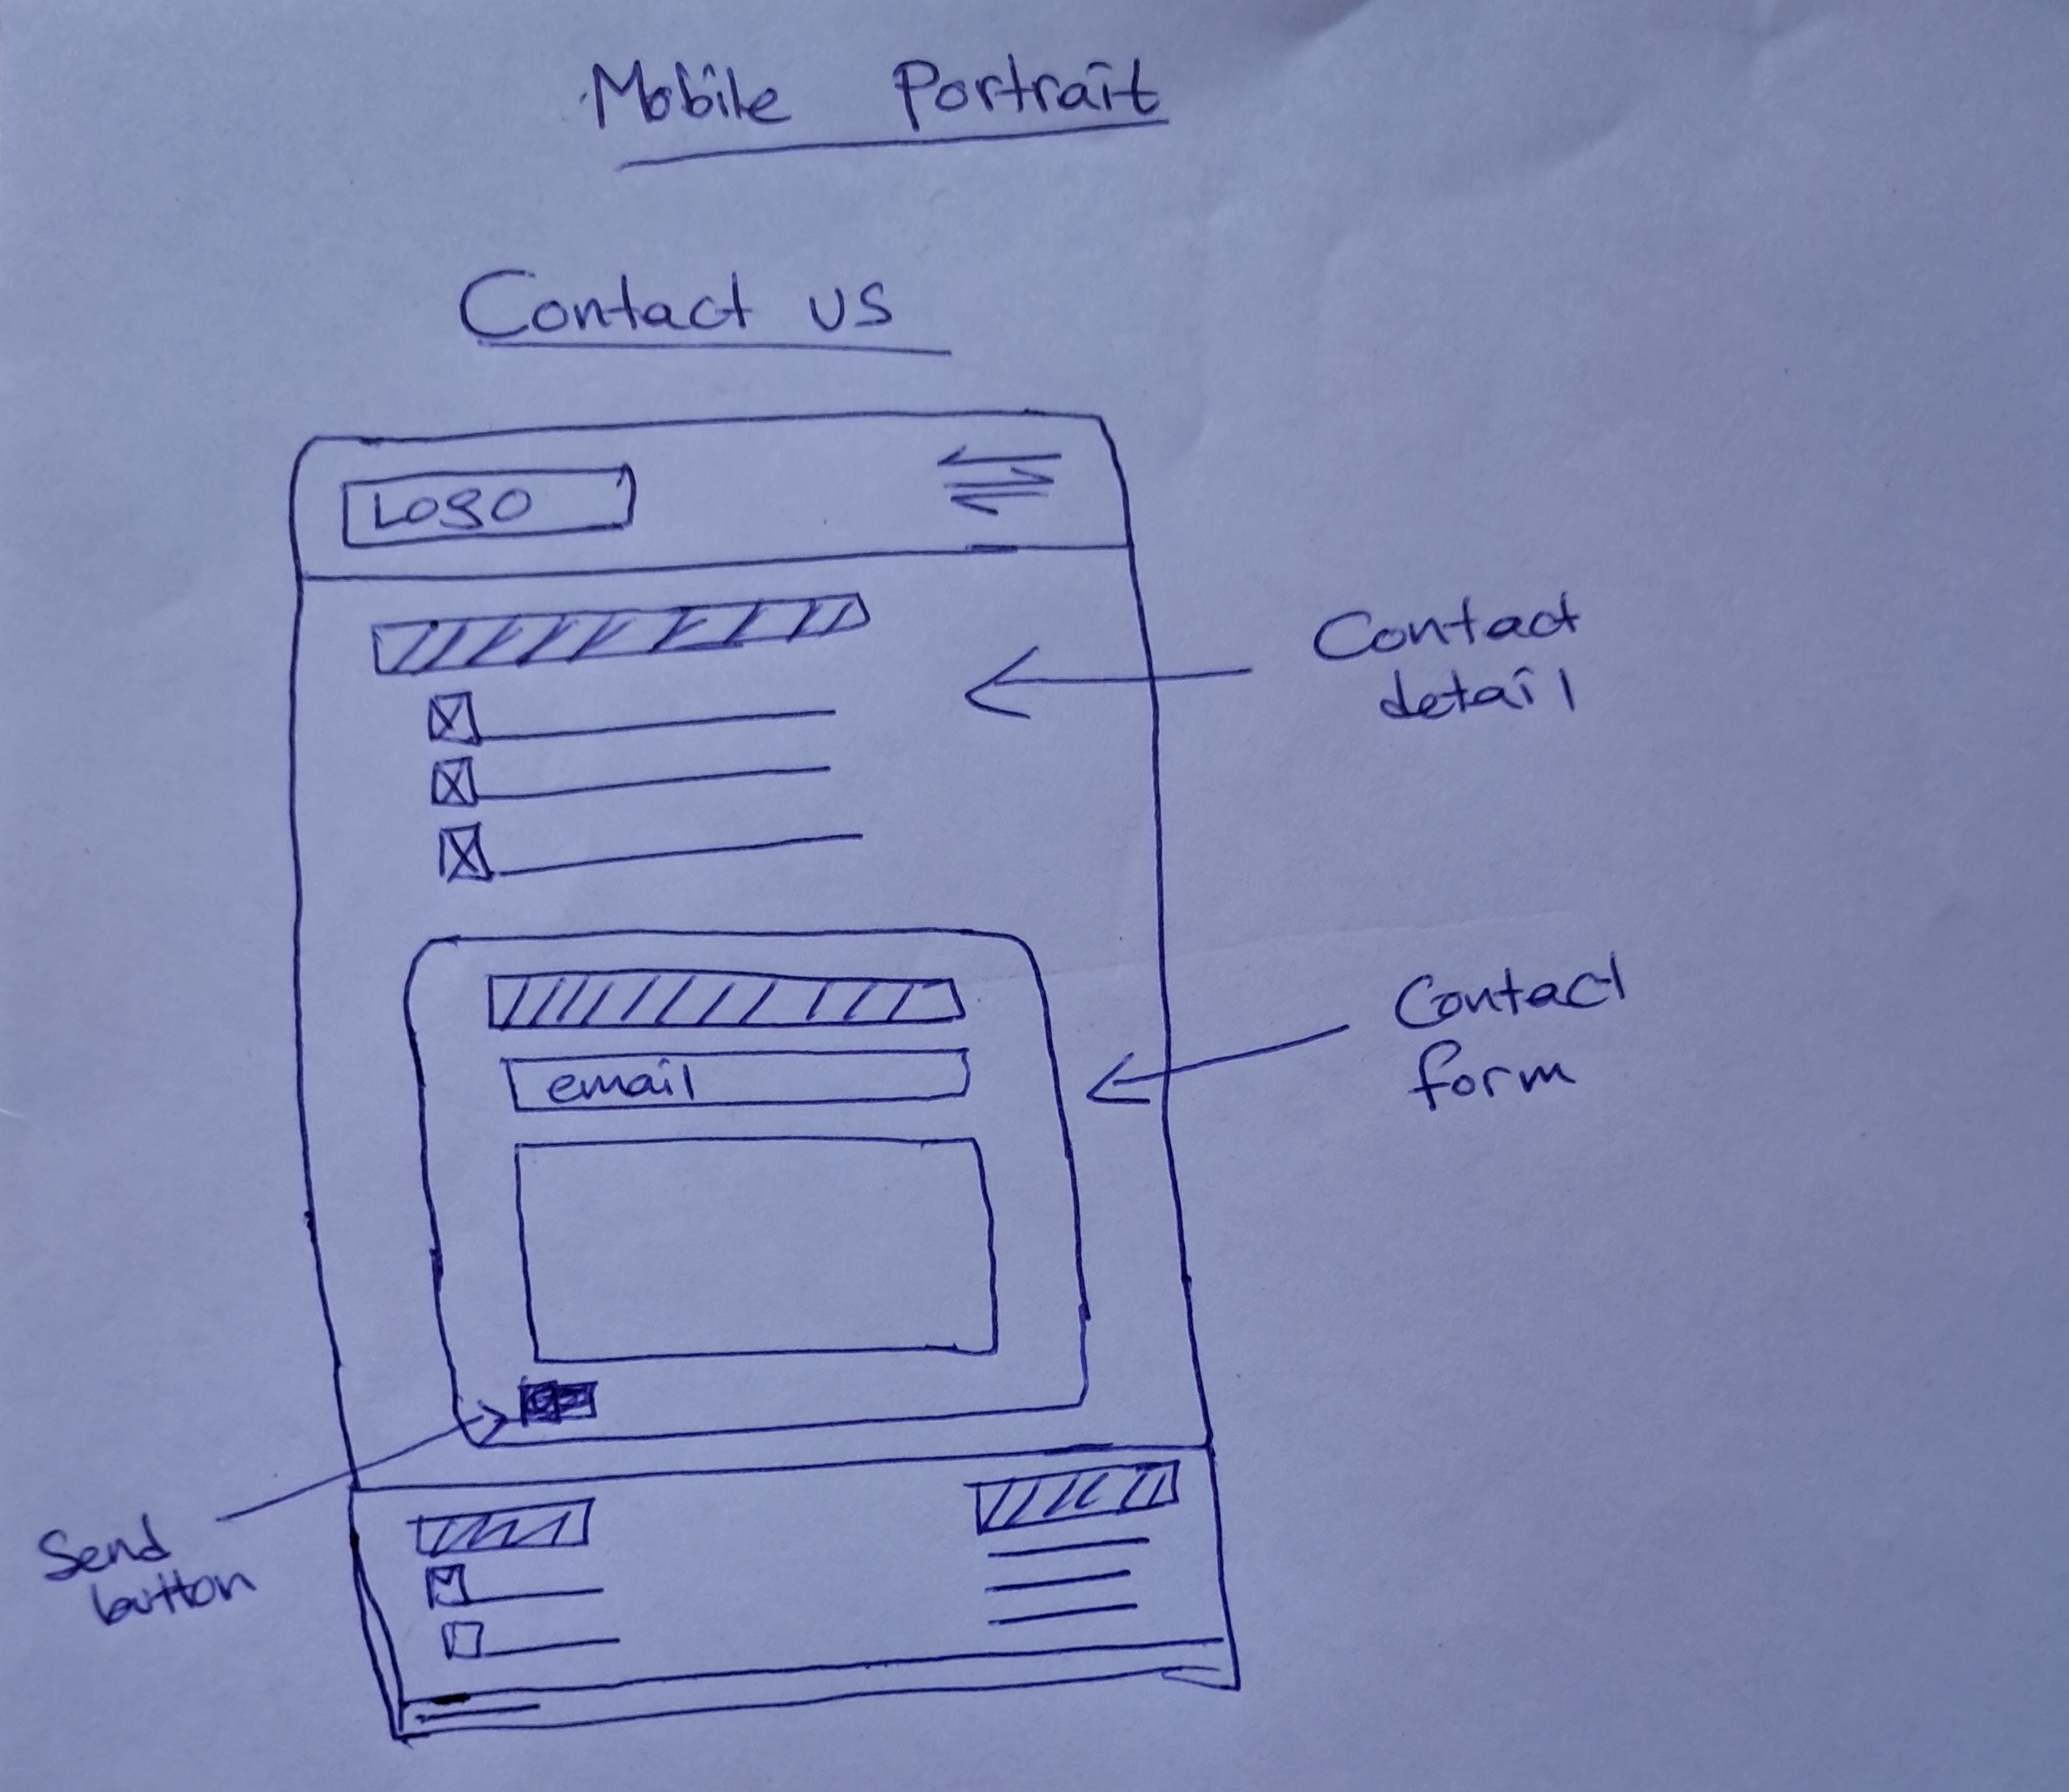 Mobile Portrait
Contact us
Logo
Contact
detail
email
Contact
form
Send
button